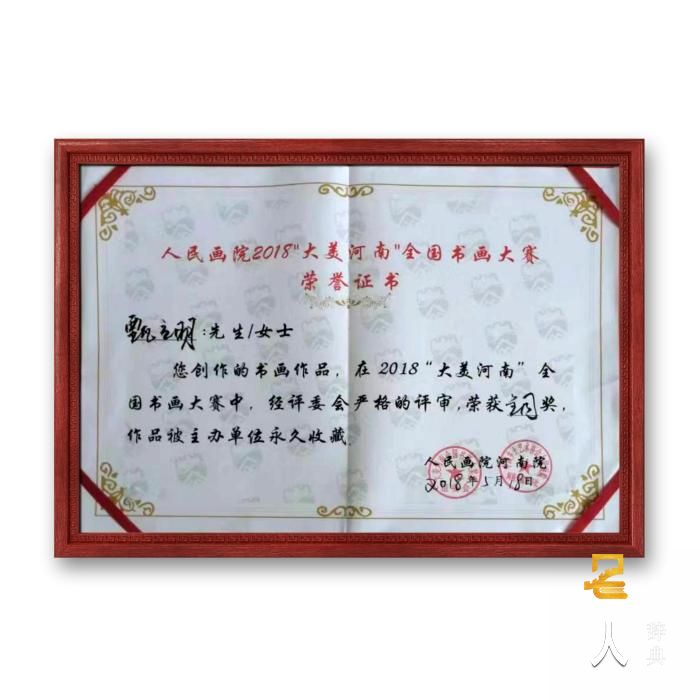 人民画院2018"大美河南"全国书画大赛
荣誉证书
甄立明:先生/女士
您创作的书画作品，在2018“大美河南”全
国书画大赛中，经评委会严格的评审,荣获铜奖,
作品被主办单位永久收藏.
人民画院河南院
2018年5月18日
人
辞典